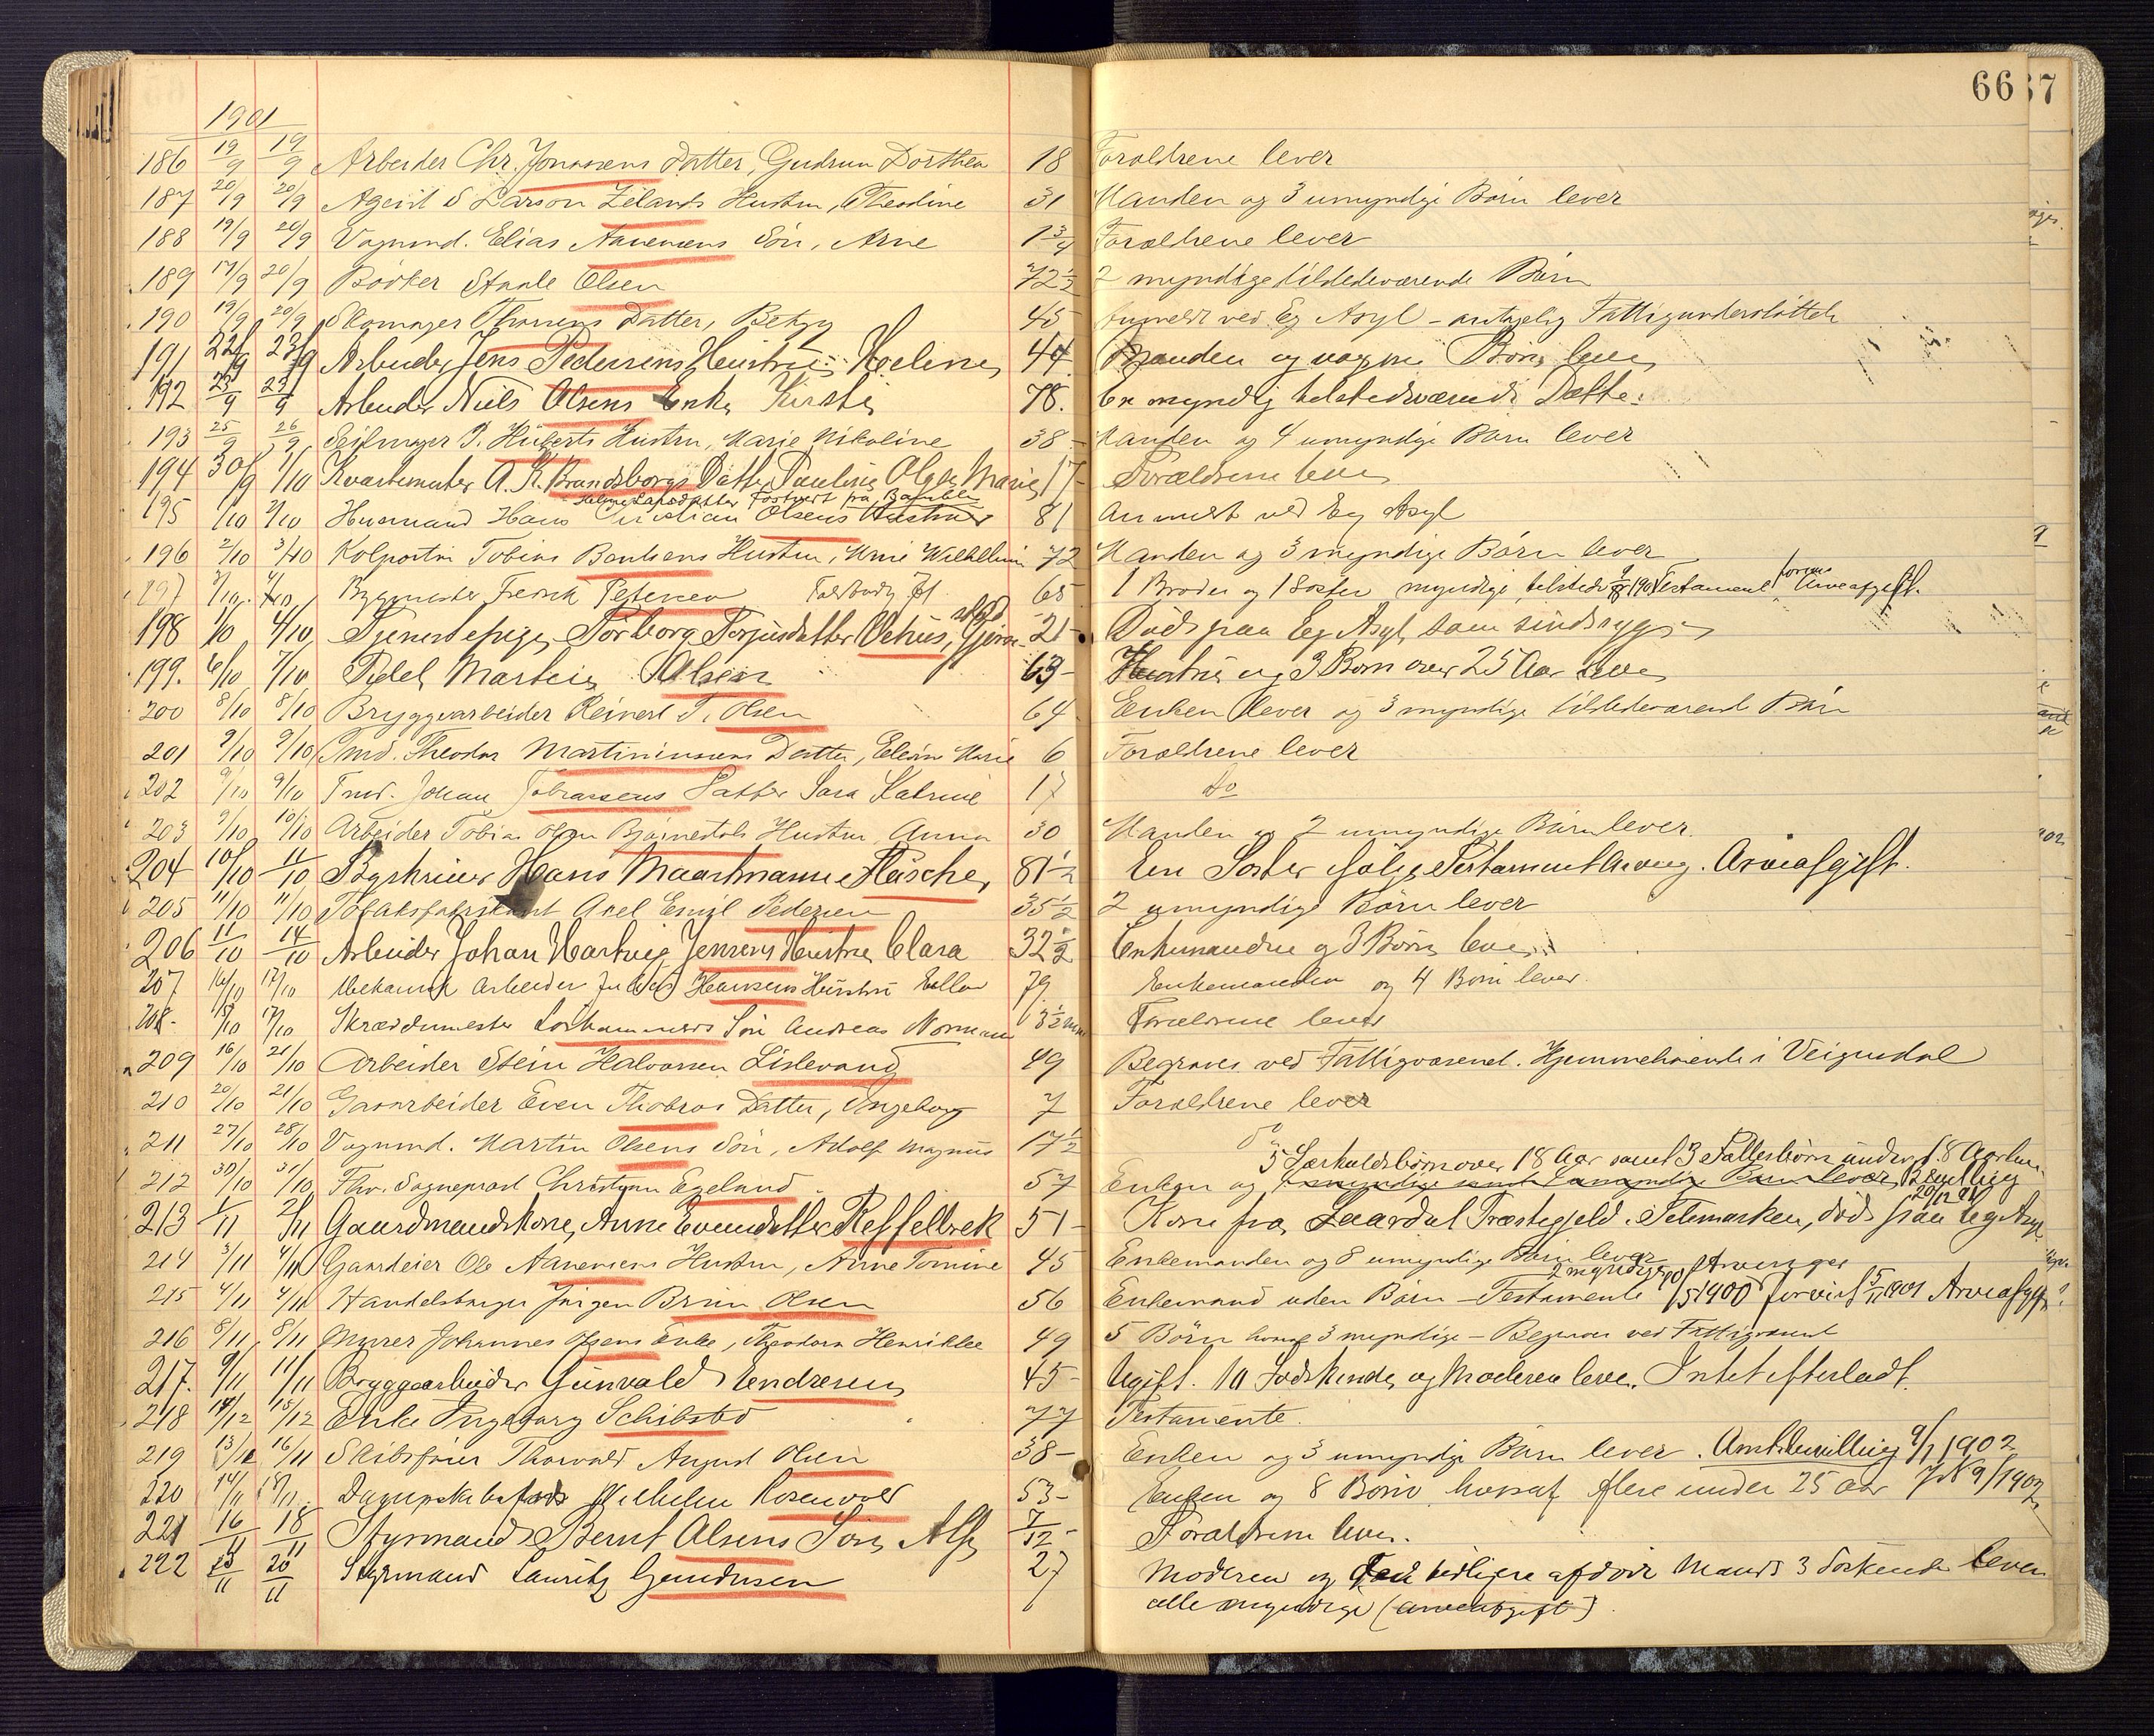 66
67
1901
186 19/9 19/9 Arbeider Chr. Jonassens Datter, Gudrun Dorthea 18 Forældrene lever
187 20/9 20/9 Agent S Larson Zelands Hustru, Theodine 31 Manden og 3 umyndige Børn lever
188 19/9 20/9 Vognmd. Elias Aanensens Søn, Arne 1 3/4 Forældrene lever
189 17/9 20/9 Bødker Staale Olsen 72 1/2 2 myndige tilstedeværende Børn
190 19/9 20/9 Skomager Datter, Betzy 45 Anmeldt ved Eg Asyl - antagelig Fattigunderstøttet
191 22/9 23/9 Arbeider Jens Pedersens Hustru Helene 44 Manden og voxne Børn lever
192 23/9 23/9 Arbeider Niels Olsens Enke Kirsti 78. En myndig tilstedeværende Datter
193 25/9 26/9 Seilmager P. Huberts Hustru, Marie Nikoline 38 - Manden og 4 umyndige Børn lever
194 30/9 1/10 Kvartermester A. K. Brandsborgs Datter Pauline Olga Marie 17 - Forældrene lever
Larsdatter Forhert fra Bamble
195 1/10 2/10 Husmand Hans Christian Olsens Hustru 81 Anmeldt ved Eg Asyl
196 2/10 3/10 Kolportør Tobias Bentsens Hustru, Wilhelmine 72 Manden og 3 myndige Børn lever
197 3/10 4/10 Bygmester Fredrik Petersen 65 1 Broder og 1 Søster myndige, Testament Arveafgift.
198 1/10 4/10 Tjenestepige Torborg Torjusdatter Vehus, 21 - Død paa Eg Asyl som sindssyg
199. 6/10 7/10 Pedel Martin Olsen 63 - Hustru og 3 Børn over 25 Aar lever
200 8/10 8/10 Bryggearbeider Reinert T. Olsen 64 Enken lever og 3 myndige tilstedeværend Børn
201 9/10 9/10 Tmd. Theodor Martiniussens Datter, Marie 6 Forældrene lever
202 9/10 9/10 Tmd. Johan Tobiassens Datter Sara Katrine 17 do
203 9/10 10/10 Arbeider Tobias Olsen Bjørnestøls Hustru Anna 30 Manden og 2 umyndige Børn lever.
204 10/10 11/10 Byskriver Hans Maartmann Fläsche 81 1/2 En Søster ifølge Testament Arving. Arveafgift.
205 11/10 11/10 Tobaksfabrikant Axel Emil Pedersen 35 1/2 2 umyndige Børn lever
206 11/10 14/10 Arbeider Johan Hartvig Jensens Hustru Clara 32 1/2 Enkemanden og 3 Børn lever
207 16/10 17/10 Mekanisk Arbeider Julius Hansens Hustru Ellen 79 Enkemanden og 4 Børn lever.
208. 15/10 17/10 Skræddermester Lorhammers Søn Andreas Normann 3 1/2 Forældrene lever
209 16/10 21/10 Arbeider Stein Halvorsen Lislevand 49 Begraves ved Fattigvæsenet. Hjemmehørende i Veigusdal
210 20/10 21/10 Gasarbeider Even Thobros Datter, Ingeborg 7 Forældrene lever
211 27/10 28/10 Vognmd. Martin Olsens Søn, Adolf Magnus 17 1/2 do
5 Særkuldsbørn over 18 Aar samt 3 Fællesbørn under 18 Aar lever
212 30/10 31/10 Fhv. Sogneprest Christian Egeland 57 Enken og
213 1/11 2/11 Gaardmandskone Anne Evensdatter Reffelbek 51 - Kone fra Laardal Præstegjeld i Telemarken, død paa Eg Asyl
214 3/11 4/11 Gaardeier Ole Aanensens Hustru, Anne Tomine 45 Enkemanden og 8 umyndige Børn lever
2 myndige Arvinger
215 4/11 4/11 Handelsborger Jørgen Brun Olsen 56 Enkemand uden Børn - Testamente 10/5 1900 forevist 5/11 1901 Arveafgift?
216 8/11 8/11 Murer Johannes Olsens Enke, Theodora Henrikke 49 5 Børn hvoraf 3 myndige - Begraves ved Fattigvæsenet
217. 9/11 11/11 Bryggearbeider Gunvald Endresen 45 - Ugift. 10 Sødskende og Moderen lever. Intet efterladt.
218 14/12 15/12 Enke Ingeborg Schibsted 77 Testamente.
219 13/11 16/11 Skibsfører Thorvald August Olsen 38 - Enken og 3 umyndige Børn lever. Amtsbevilling 9/1 1902
220 14/11 18/11 Dampskibsfører Wilhelm Rosenvold 53 - Enken og 8 Børn hvoraf flere under 25 Aar J N 9/1902
221 16/11 18/11 Styrmand Bernt Olsens Søn Alf 7/12 - Forældrene lever.
222 20/11 Styrmand Lauritz Gundersen 27 Moderen og tidligere afdøde Mands 3 Søskende lever
alle myndige (Arveafgift)